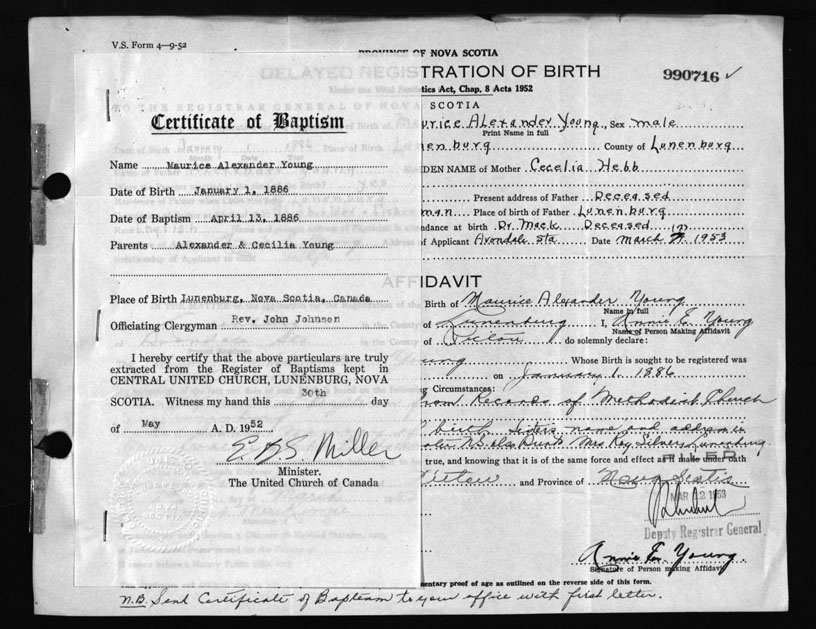 V.S. Form 4—9-52
PROVINCE OF NOVA SCOTIA
DELAYED REGISTRATION OF BIRTH
990716 ✓
tics Act, Chap. 8 Acts 1952
SCOTIA
Certificate of Baptism
Name Maurice Alexander Young
Date of Birth January 1, 1886
Date of Baptism April 13, 1886
Parents Alexander & Cecilia Young
Place of Birth Lunenburg, Nova Scotia, Canada
Officiating Clergyman Rev. John Johnson
I hereby certify that the above particulars are truly
extracted from the Register of Baptisms kept in
CENTRAL UNITED CHURCH, LUNENBURG, NOVA
SCOTIA. Witness my hand this 30th day
of May A. D. 1952
E B S Miller
Minister.
The United Church of Canada
urice Alexander Young, Sex male
Print Name in full
nenburg County of Lunenburg
DEN NAME of Mother Cecelia Hebb
Present address of Father Deceased
man Place of birth of Father Lunenburg
ndance at birth Dr. Mack Deceased
of Applicant Avondale Sta Date March 1953
AFFIDAVIT
Birth of Maurice Alexander Young
Name in full
of Lunenburg I, Annie E. Young
Name of Person Making Affidavit
of Pictou do solemnly declare:
ung Whose Birth is sought to be registered was
on January 1. 1886
g Circumstances:
rom Records of Methodist Church
birth, sisters name and address is
Mrs Ray Lunenburg
true, and knowing that it is of the same force and effect as if made under oath
FILED
Pictou and Province of Nova Scotia
MAR 12 1953
Deputy Registrar General
Annie E. Young.
Signature of Person making Affidavit
mentary proof of age as outlined on the reverse side of this form.
N.B. Send Certificate of Baptism to your office with first letter.